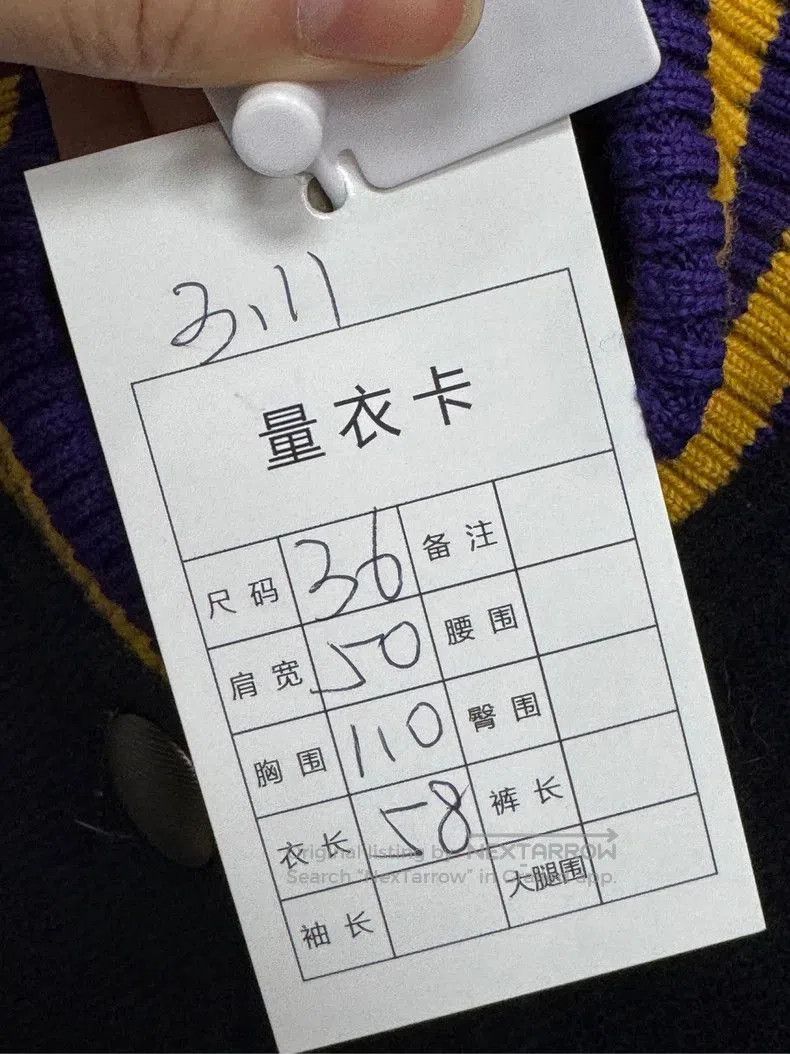 3.11
量衣卡
尺码 36 备注
肩宽 50 腰围
胸围 110 臀围
衣长 58 裤长
Original listing by NEXTARROW
Search "NexTarrow" in app.
袖长 大腿围